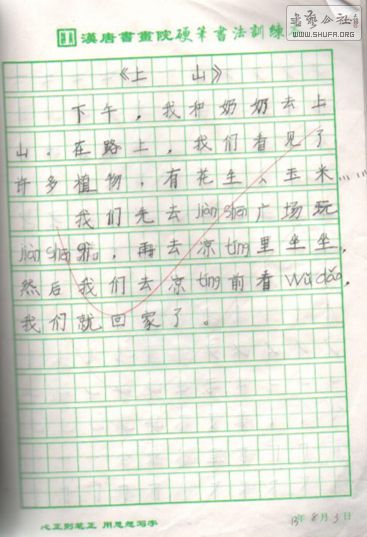 漢唐書畫院硬筆書法訓練
书艺公社
WWW.SHUFA.ORG
《上 山》
下午，我和奶奶去上
山。在路上，我们看见了
许多植物，有花生、玉米……
我们先去jiàn shēn广场玩
jiàn shēn，再去凉tíng里坐坐，
然后我们去凉tíng前看wǔ dǎo，
我们就回家了。
心正则笔正 用思想写字
13年8月3日